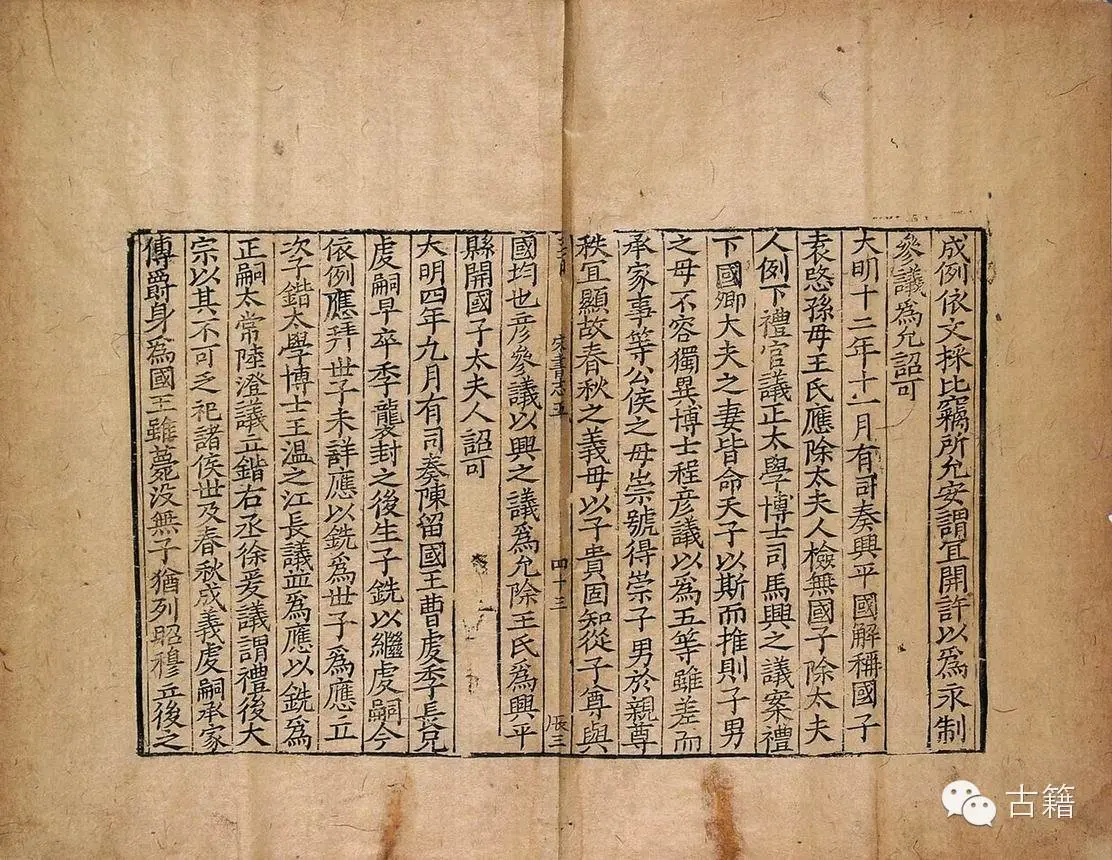 成例依文採比竊所允安謂宜開許以爲永制
參議爲允詔可
大明十二年十一月有司奏興平國解稱國子
袁愍孫母王氏應除太夫人檢無國子除太夫
人例下禮官議正太學博士司馬興之議案禮
下國卿大夫之妻皆命天子以斯而推則子男
之母不容獨異博士程彦議以爲五等雖差而
承家事等公侯之母崇號得崇子男於親尊
秩宜顯故春秋之義母以子貴固知從子尊與
宋書志五
四十三
國均也彦參議以興之議爲允除王氏爲興平
縣開國子太夫人詔可
大明四年九月有司奏陳留國王曹虔季長兄
虔嗣早卒季襲封之後生子銑以繼虔嗣今
依例應拜世子未詳應以銑爲世子爲應立
次子鍇太學博士王温之江長議並爲應以銑爲
正嗣太常陸澄議立鍇右丞徐爰議謂禮後大
宗以其不可乏祀諸侯世及春秋成義虔嗣承家
傳爵身爲國王雖薨没無子猶列昭穆立後之
古籍